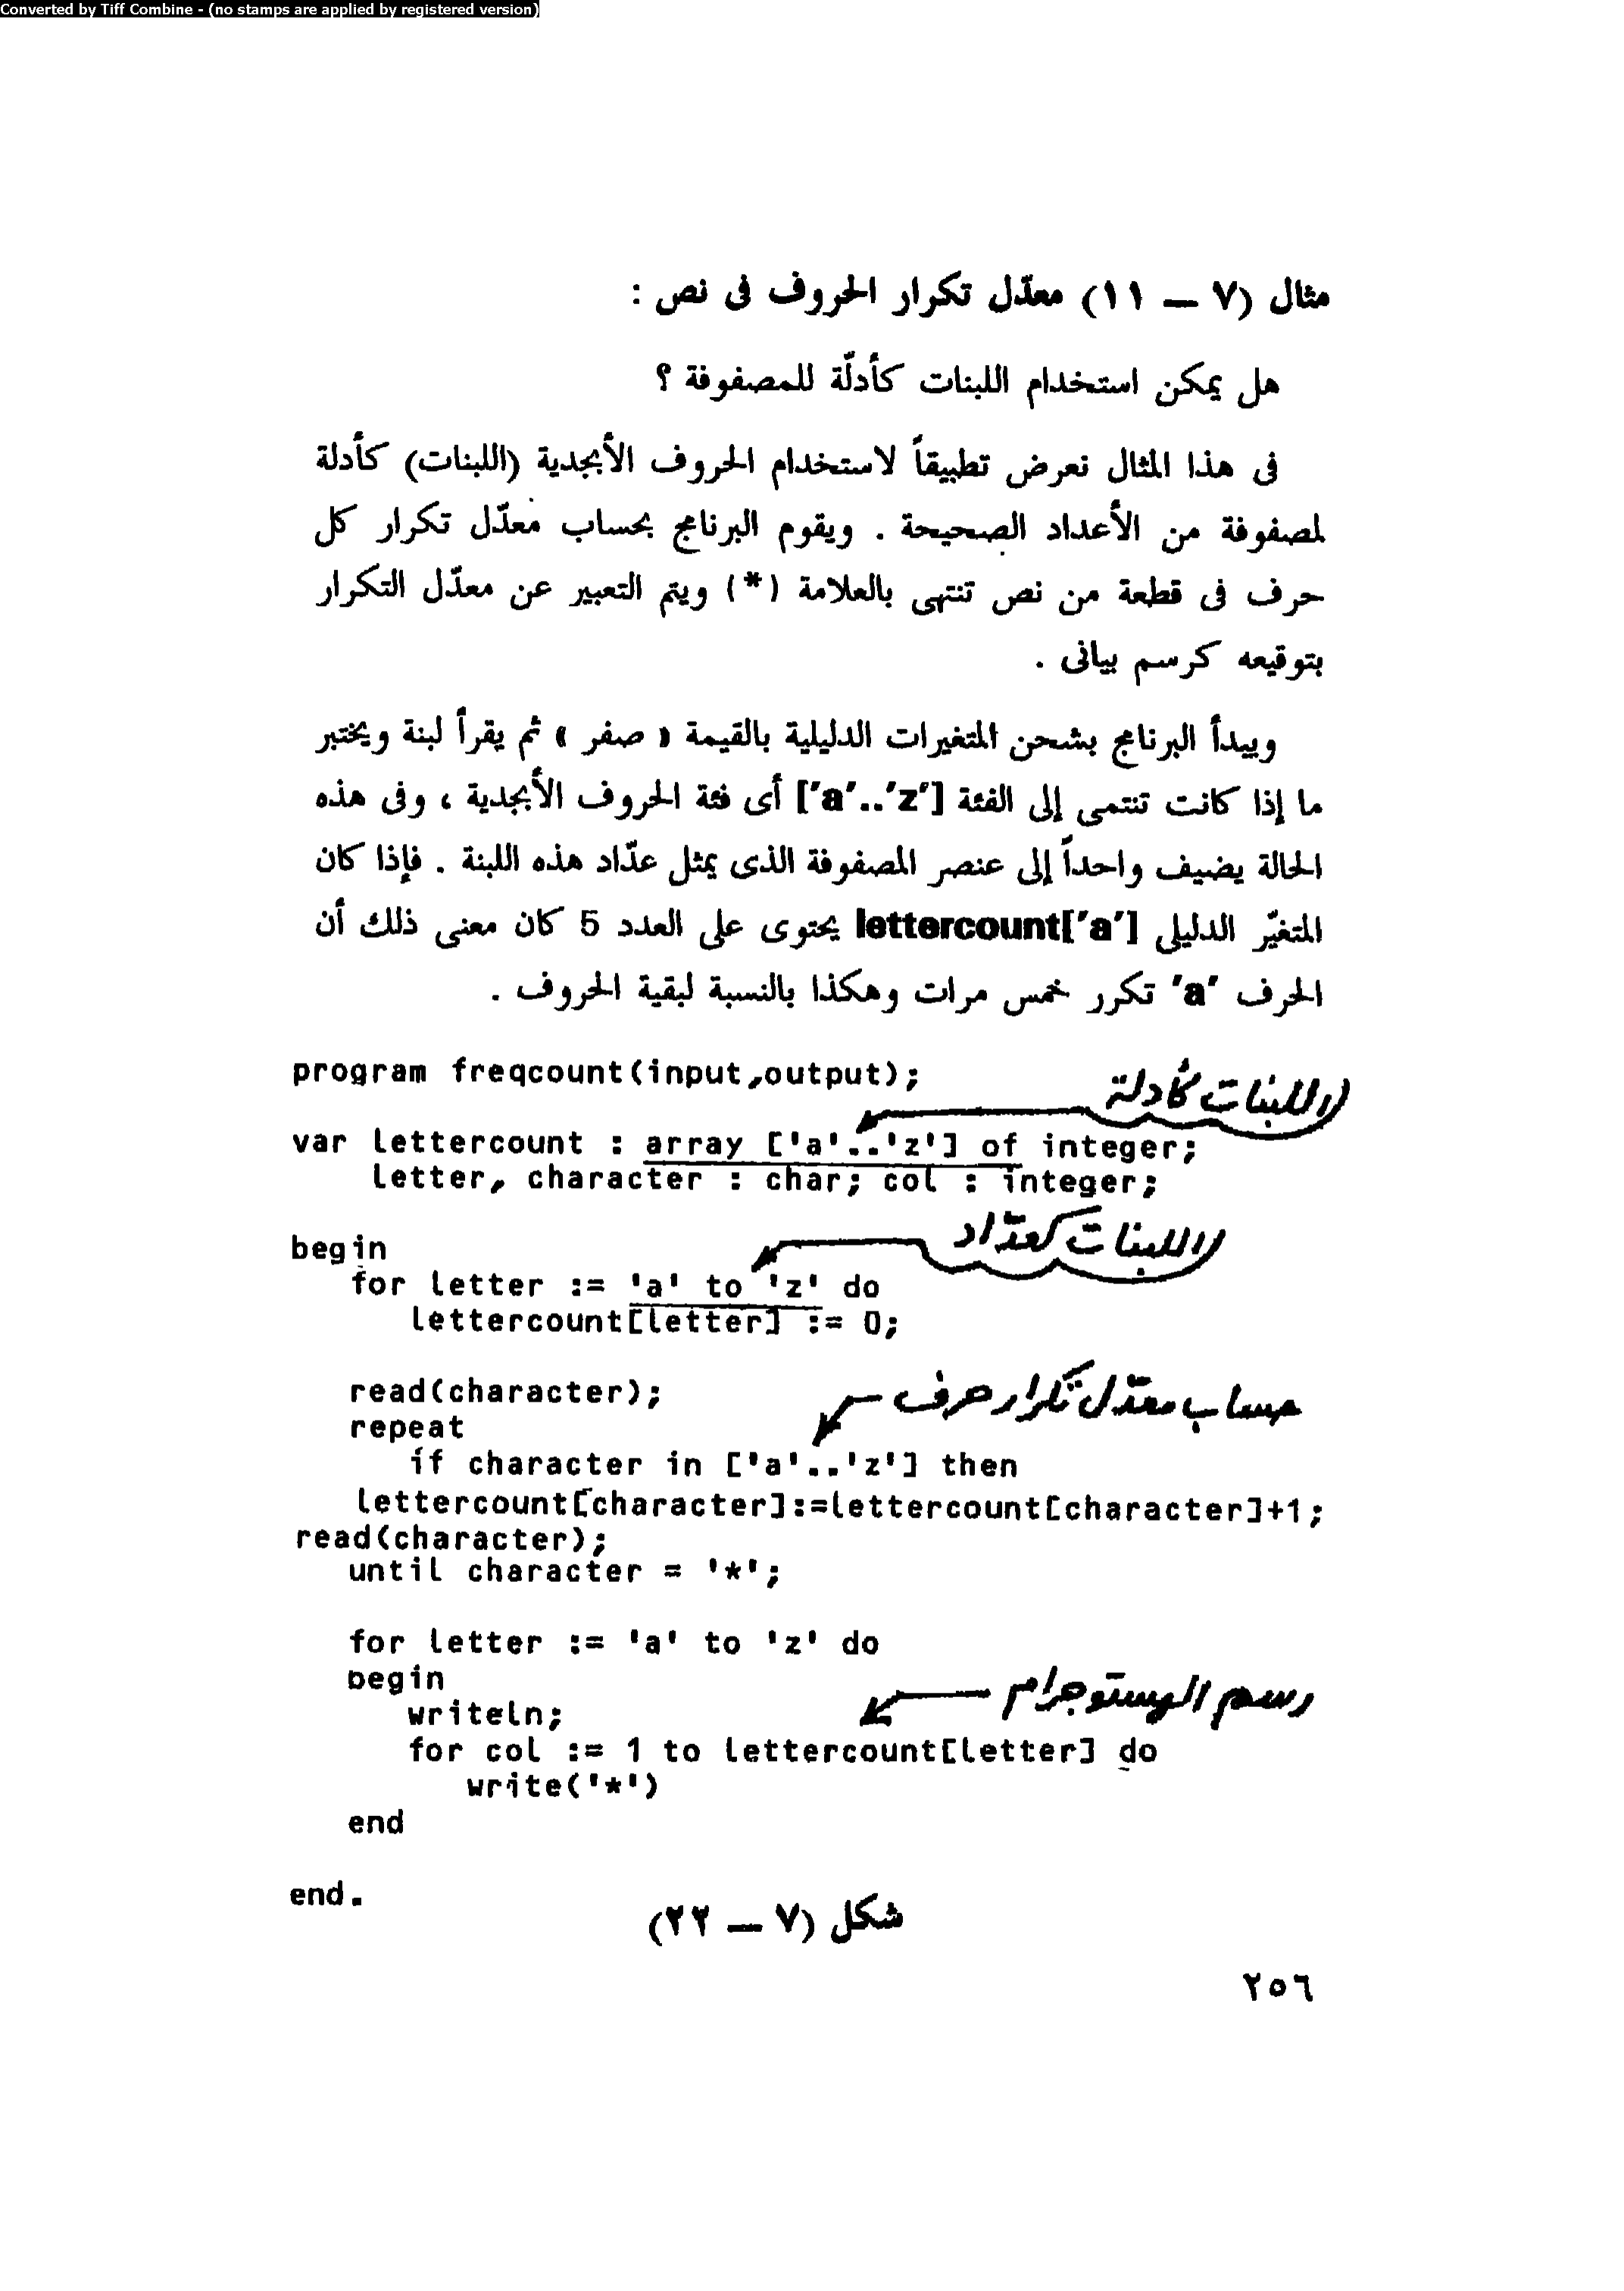 Converted by Tiff Combine - (no stamps are applied by registered version)
مثال (٧ – ١١) معدّل تكرار الحروف فى نص :
هل يمكن استخدام اللبنات كأدلّة للمصفوفة ؟
فى هذا المثال نعرض تطبيقاً لاستخدام الحروف الأبجدية (اللبنات) كأدلة
لمصفوفة من الأعداد الصحيحة . ويقوم البرنامج بحساب معدّل تكرار كل
حرف فى قطعة من نص تنتهى بالعلامة (*) ويتم التعبير عن معدّل التكرار
بتوقيعه كرسم بيانى .
ويبدأ البرنامج بشحن المتغيرات الدليلية بالقيمة « صفر » ثم يقرأ لبنة ويختبر
ما إذا كانت تنتمى إلى الفئة ['a'..'z'] أى فئة الحروف الأبجدية ، وفى هذه
الحالة يضيف واحداً إلى عنصر المصفوفة الذى يمثل عدّاد هذه اللبنة . فإذا كان
المتغيّر الدليلى lettercount['a'] يحتوى على العدد 5 كان معنى ذلك أن
الحرف 'a' تكرر خمس مرات وهكذا بالنسبة لبقية الحروف .
program freqcount(input,output);
اللبنات كأدلة
var lettercount : array ['a'..'z'] of integer;
letter, character : char; col : integer;
اللبنات كعدّاد
begin
for letter := 'a' to 'z' do
lettercount[letter] := 0;
read(character);
حساب معدّل تكرار حرف
repeat
if character in ['a'..'z'] then
lettercount[character]:=lettercount[character]+1;
read(character);
until character = '*';
for letter := 'a' to 'z' do
begin
رسم الهستوجرام
writeln;
for col := 1 to lettercount[letter] do
write('*')
end
end.
شكل (٧ – ٢٢)
٢٥٦